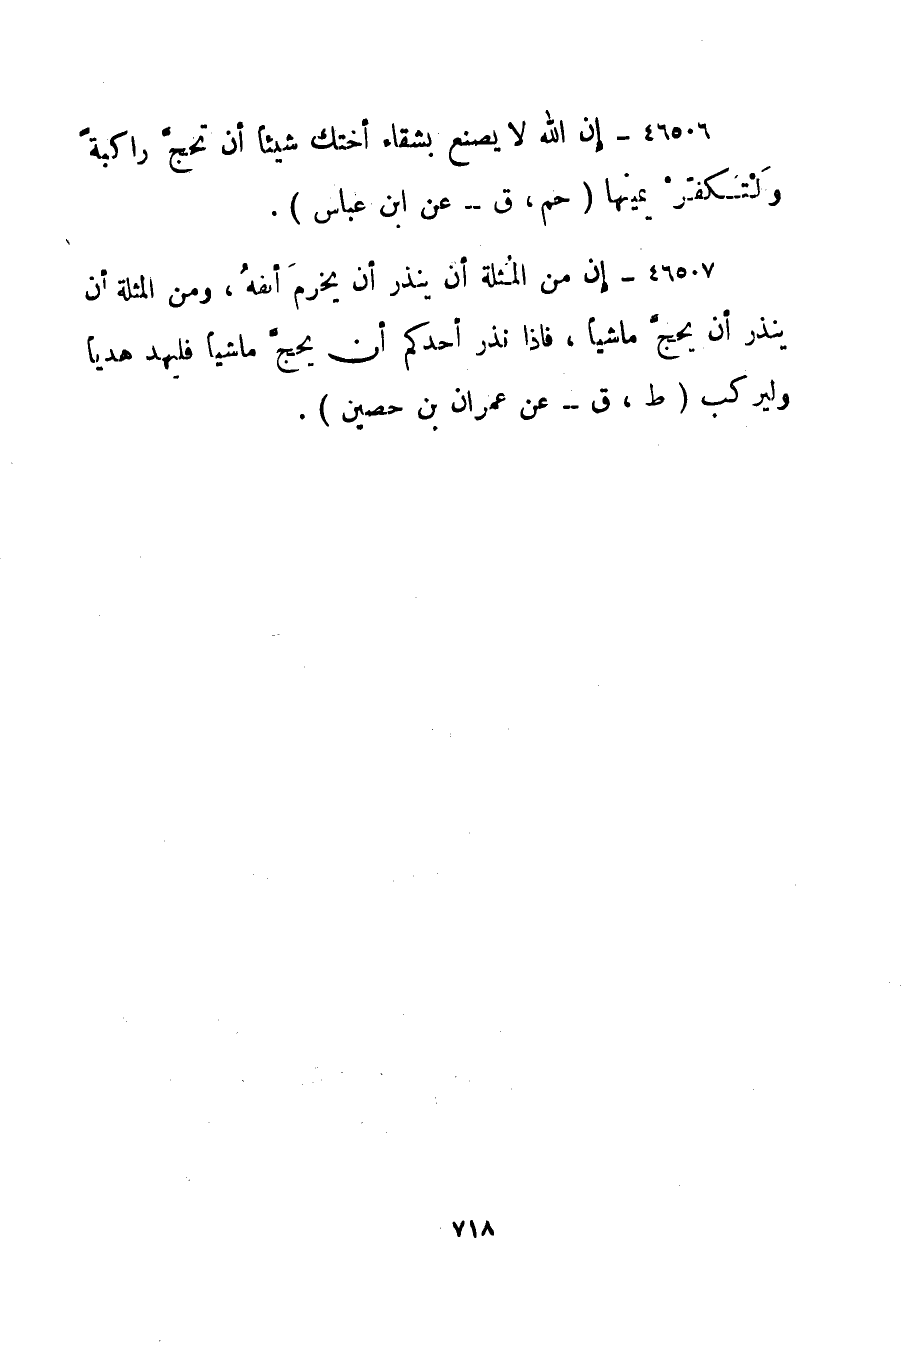 ٤٦٥٠٦ ــ إن الله لا يصنع بشقاء أختك شيئاً أن تحجَّ راكبةً
وَلْتُـكفرْ يمينها ( حم ، ق ــ عن ابن عباس ) .
٤٦٥٠٧ ــ إن من المُثلة أن ينذر أن يخرمَ أنفهُ ، ومن المثلة أن
ينذر أن يحجَّ ماشياً ، فاذا نذر أحدكم أن يحجَّ ماشياً فليهد هدياً
وليركب ( ط ، ق ــ عن عمران بن حصين ) .
٧١٨